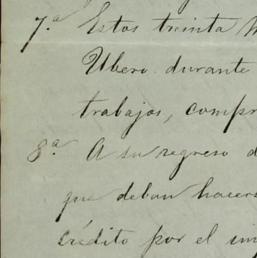 7.ª Estos treinta
Ubero durante
trabajos, compr
8.ª A su regreso d
que deban hacers
crédito por el im